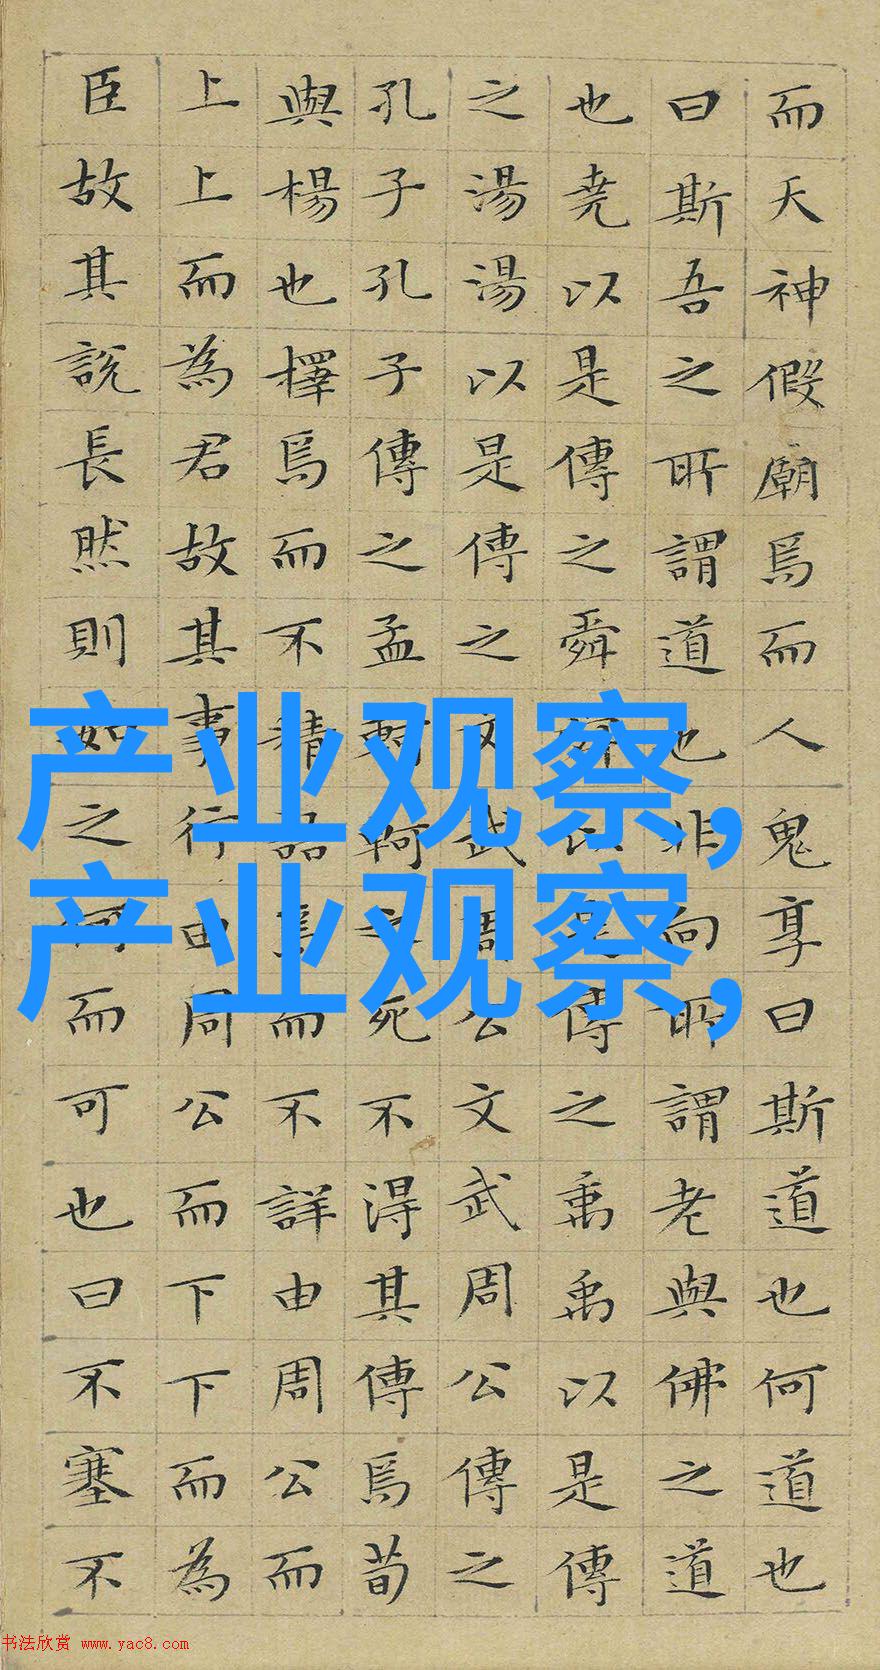 而天神假廟焉而人鬼享曰斯道也何道也
曰斯吾之所謂道也非向所謂老與佛之道
也堯以是傳之舜舜以是傳之禹禹以是傳
之湯湯以是傳之文武周公文武周公傳之
孔子孔子傳之孟軻軻之死不得其傳焉荀
與楊也擇焉而不精語焉而不詳由周公而
上上而為君故其事行由周公而下下而為
臣故其說長然則如之何而可也曰不塞不
产业观察,
产业观察,
书法欣赏 www.yac8.com